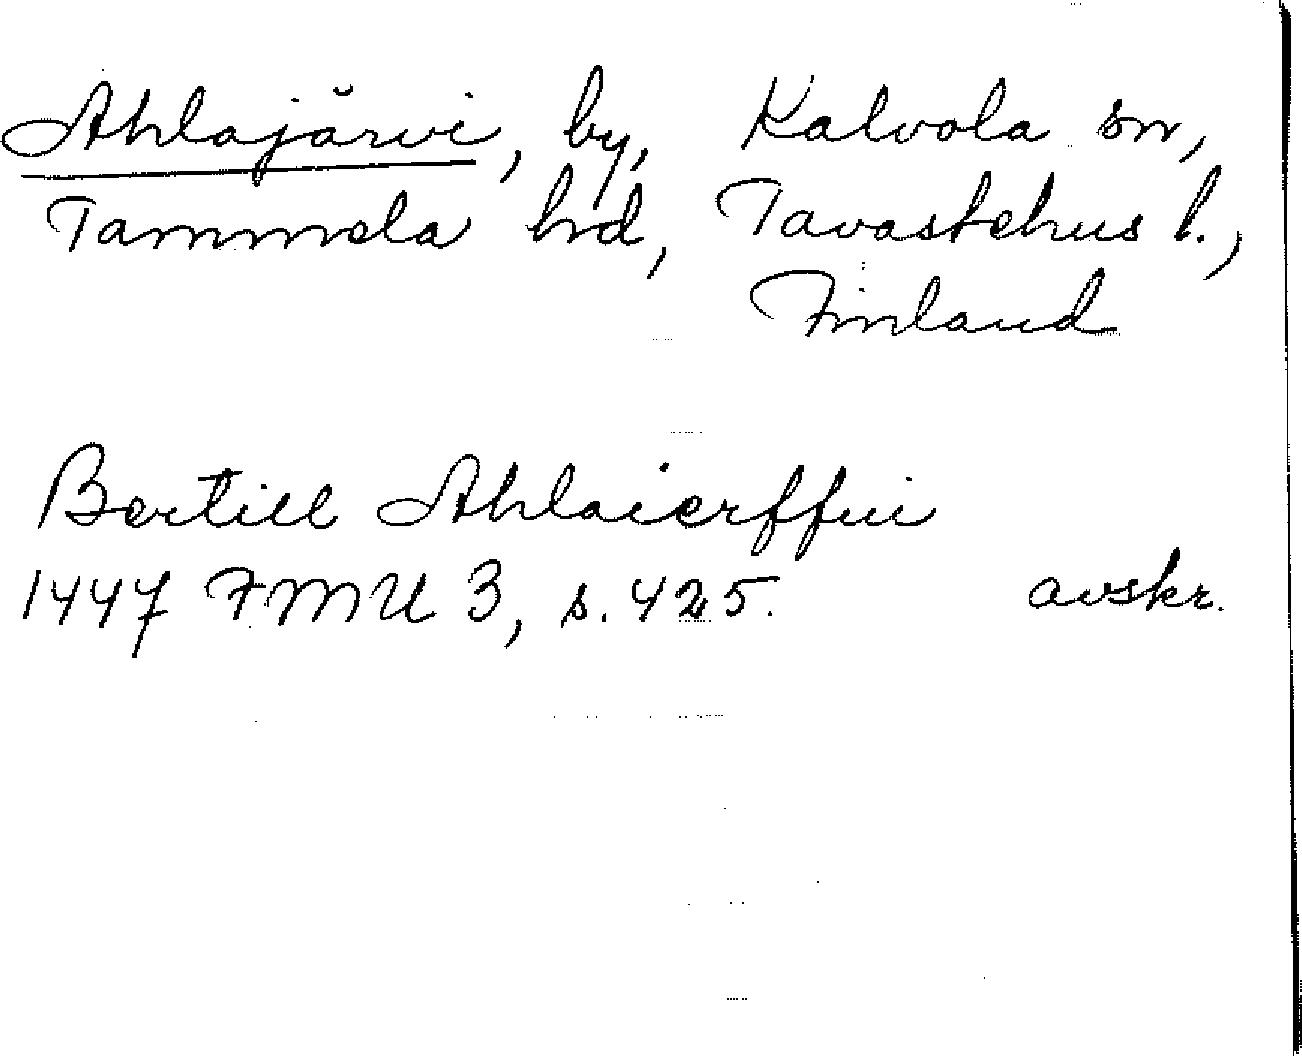 Ahlajärvi, by, Kalvola sn,
Tammela hd, Tavastehus l.,
Finland
Bertill Ahlaierffui
1447 FMU 3, s. 425. avskr.